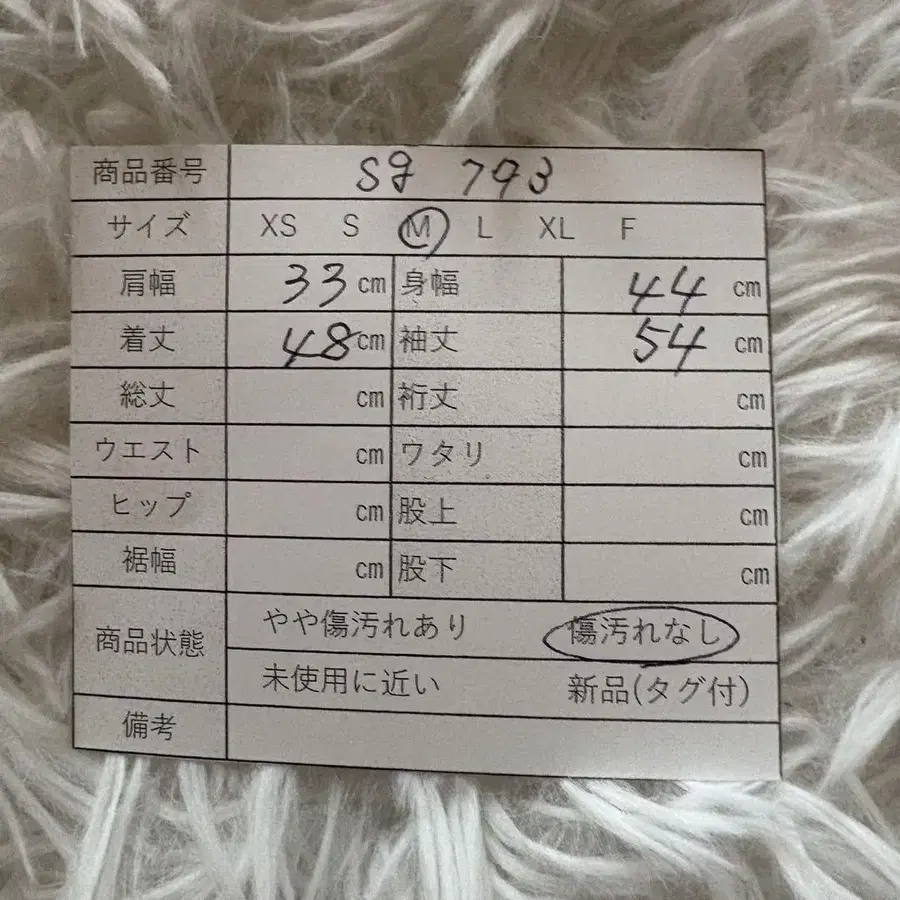 商品番号 sg 793
サイズ XS S M L XL F
肩幅 33 cm 身幅 44 cm
着丈 48 cm 袖丈 54 cm
総丈 cm 裄丈 cm
ウエスト cm ワタリ cm
ヒップ cm 股上 cm
裾幅 cm 股下 cm
商品状態 やや傷汚れあり 傷汚れなし
未使用に近い 新品(タグ付)
備考